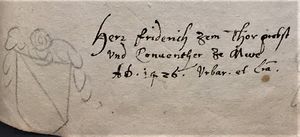 Herr Friderich zem Thor probst
Und Conventher ze
Aō. 1426. Urbar. et Cra.